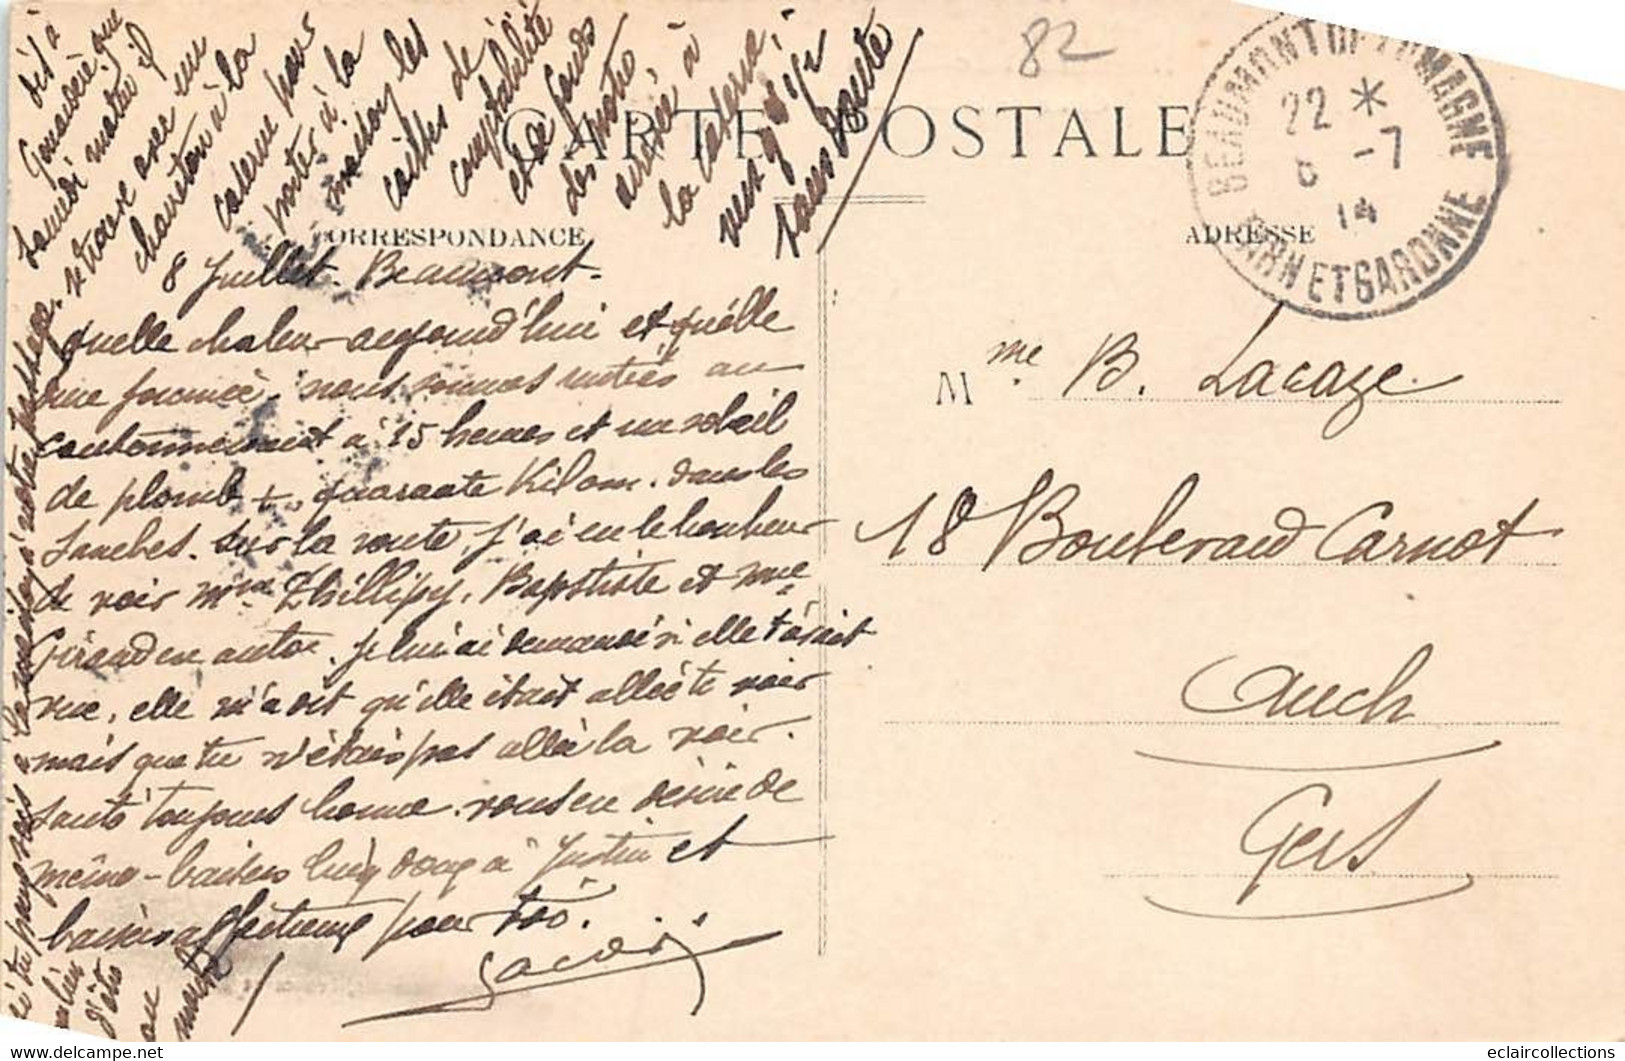 82
CARTE POSTALE
CORRESPONDANCE
ADRESSE
BEAUMONT DE LOMAGNE
22 *
8 -7
14
TARN ET GARONNE
8 Juillet. Beaumont.
quelle chaleur aujourd'hui et quelle
une journée. nous sommes rentrés au
cantonnement à 15 heures et un soleil
de plomb +, quarante Kilom. dans les
Jambes. Sur la route, j'ai eu le bonheur
de voir Mme Phillipy, Baptiste et Mme
Giraud en auto. Je lui ai demandé si elle t'avait
vue, elle m'a dit qu'elle était allée te voir
mais que tu n'étais pas allée la voir.
Santé toujours bonne. vous en désire de
même - baisers à Justin et
baisers affectueux pour toi.
Mme B. Lacaze
18 Boulevard Carnot
Auch
Gers
dès à
que
samedi matin il
se trouve avec un
charreton à la
caserne pour
porter à la
maison les
caisses de
comptabilité
et de
de notre
arrivée à
la Caserne,
vers 9 h 1/2
sans doute
la maison, à notre passage.
eclaircollections